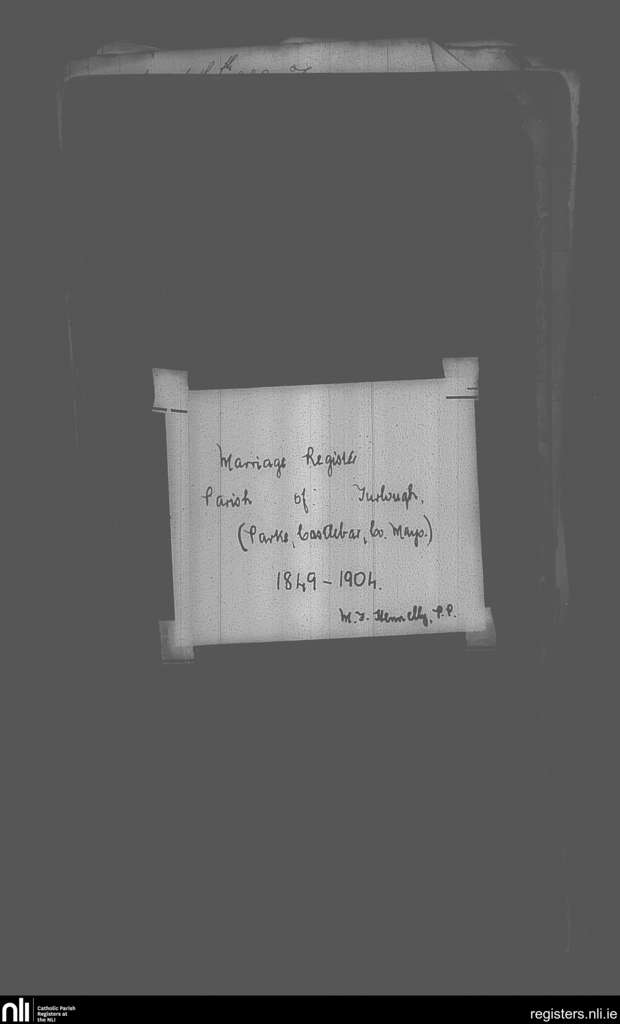 Marriage Register
Parish of Turlough.
(Parke, Castlebar, Co. Mayo.)
1849 - 1904.
M. F. Hennelly, P.P.
nli
Catholic Parish
Registers at
the NLI
registers.nli.ie